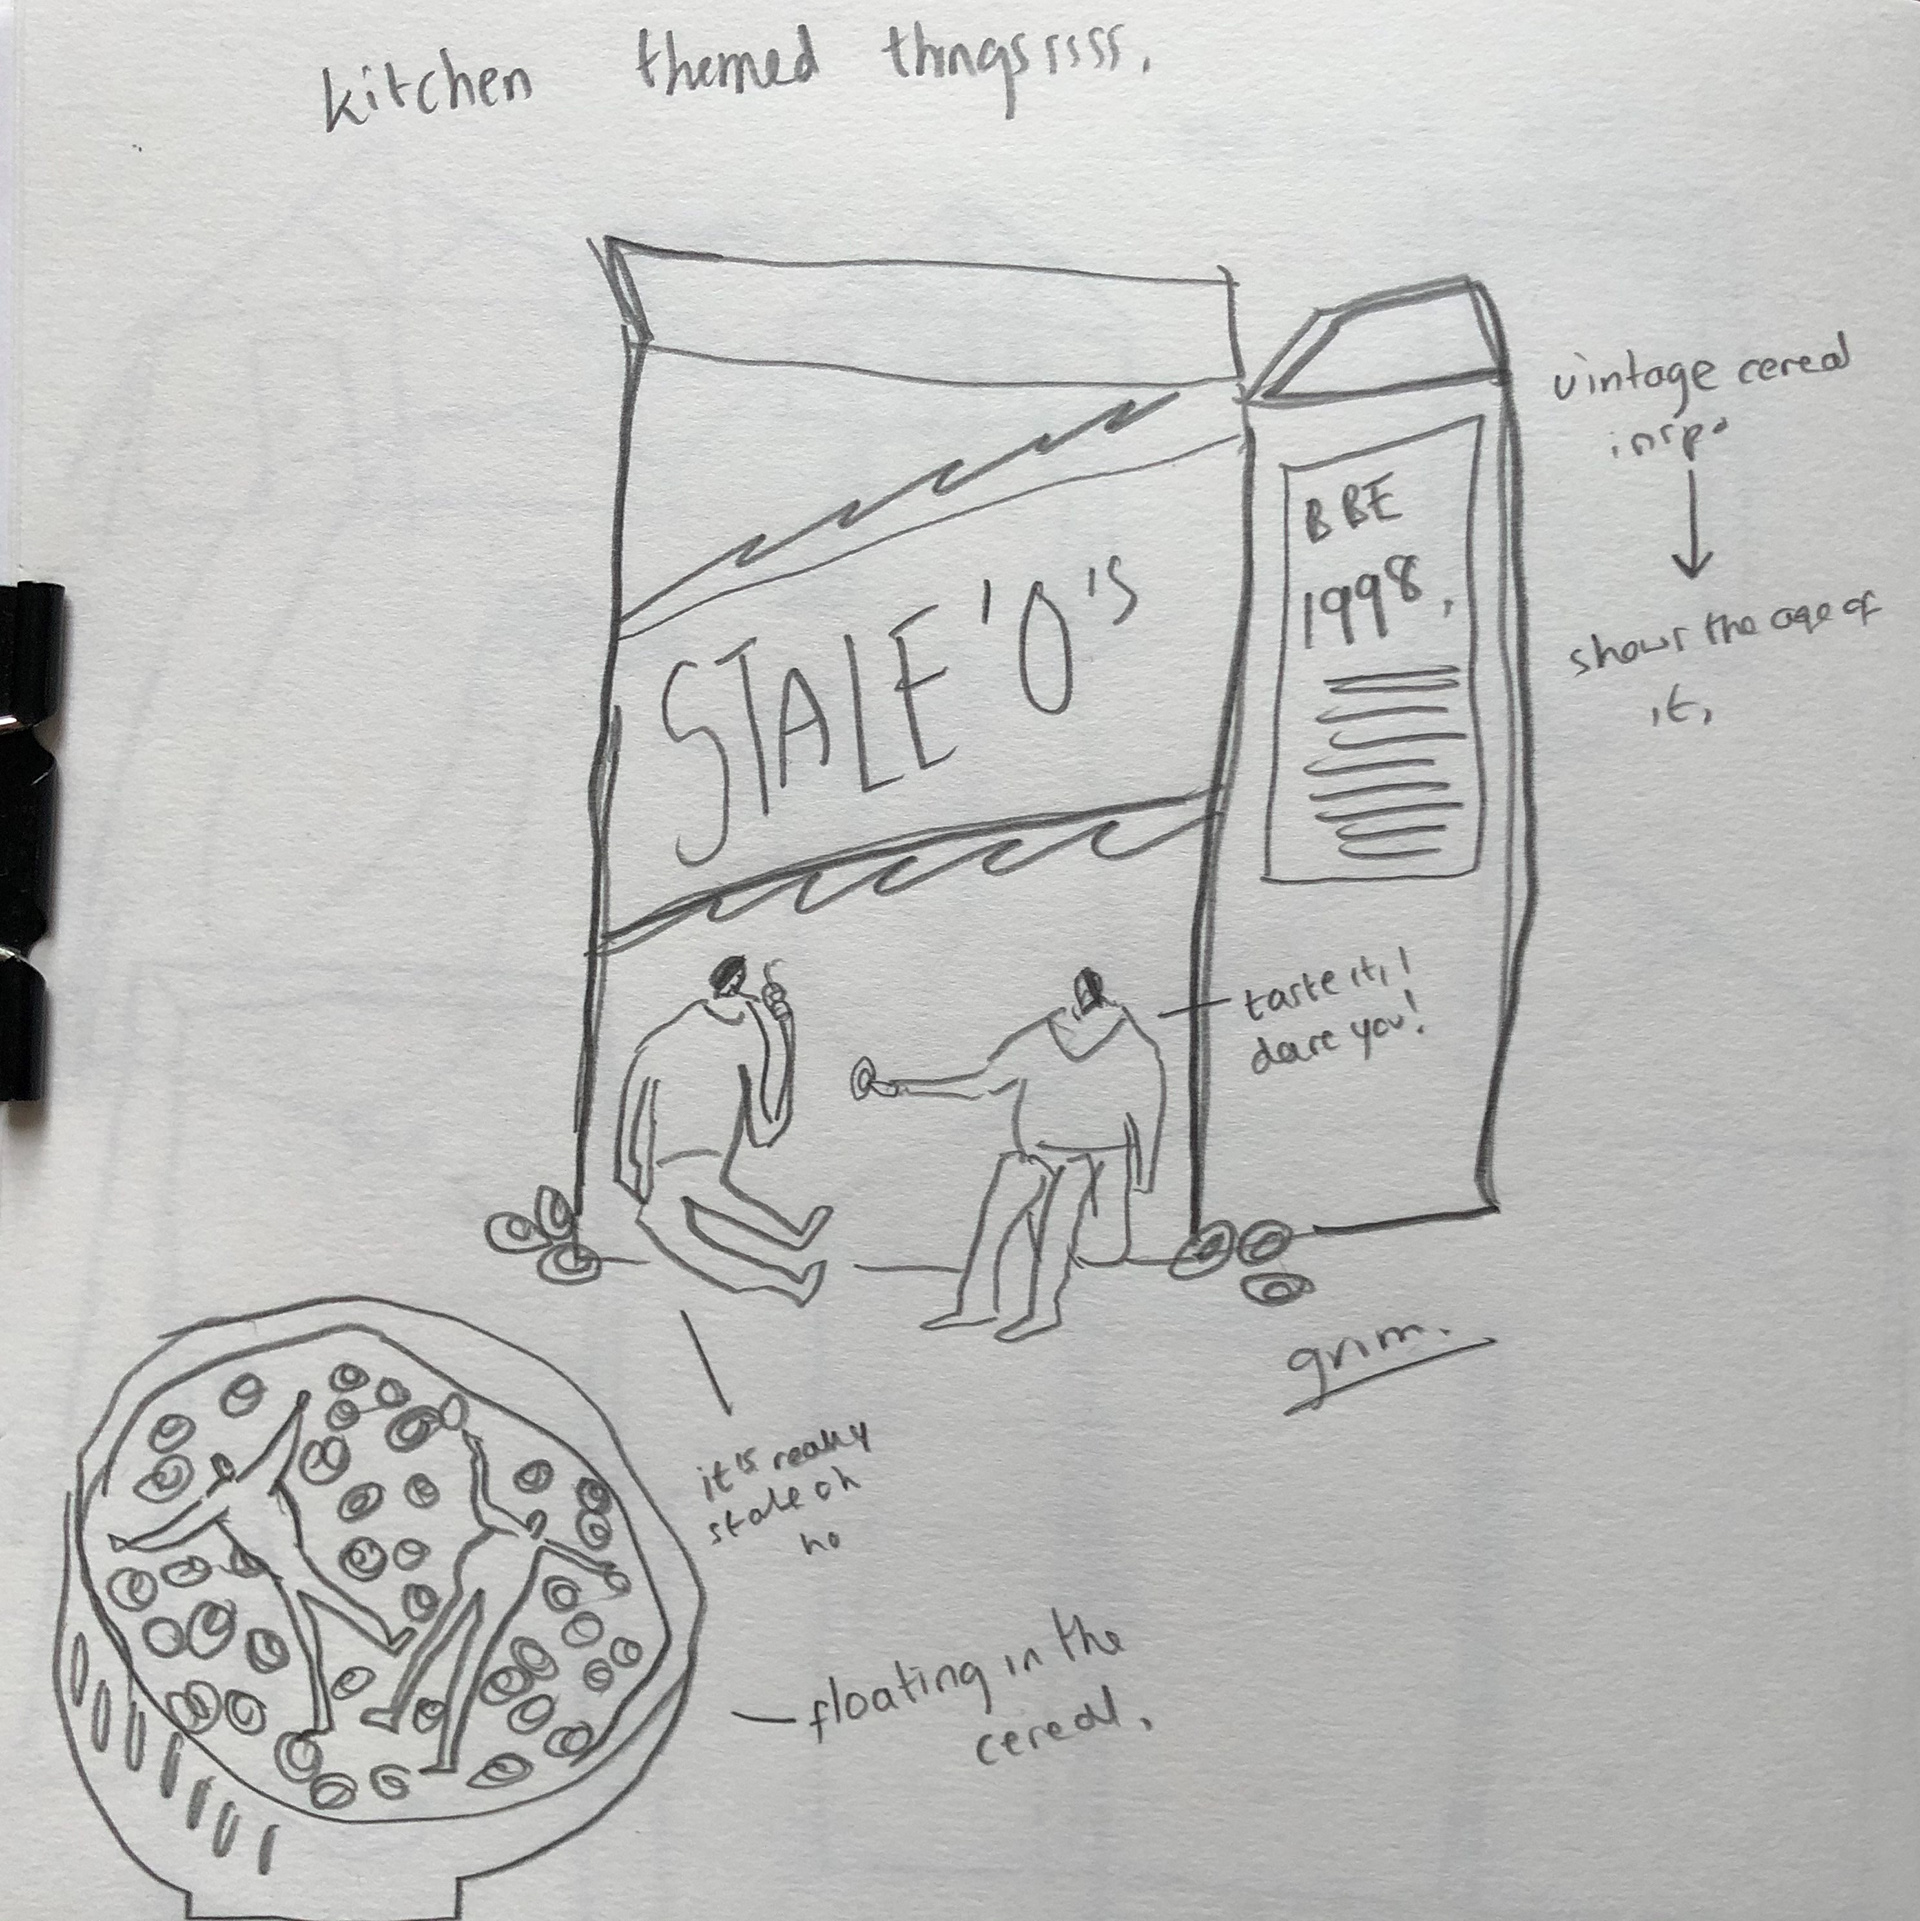 kitchen themed thingsssss.
STALE'O'S
BBE
1998.
vintage cereal
inspo
shows the age of
it.
taste it,!
dare you!
grim.
it's really
stale oh
no
floating in the
cereal.